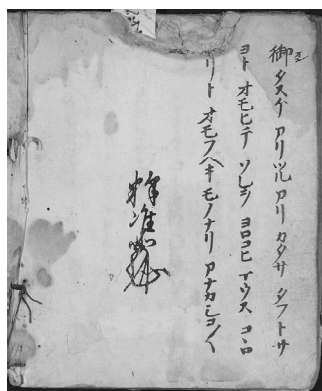 御タスケアリツルアリカタサタフトサ
ヨトオモヒテソレヲヨロコヒマウスコヽロ
リトオモフヘキモノナリアナカシコ〱
釋准